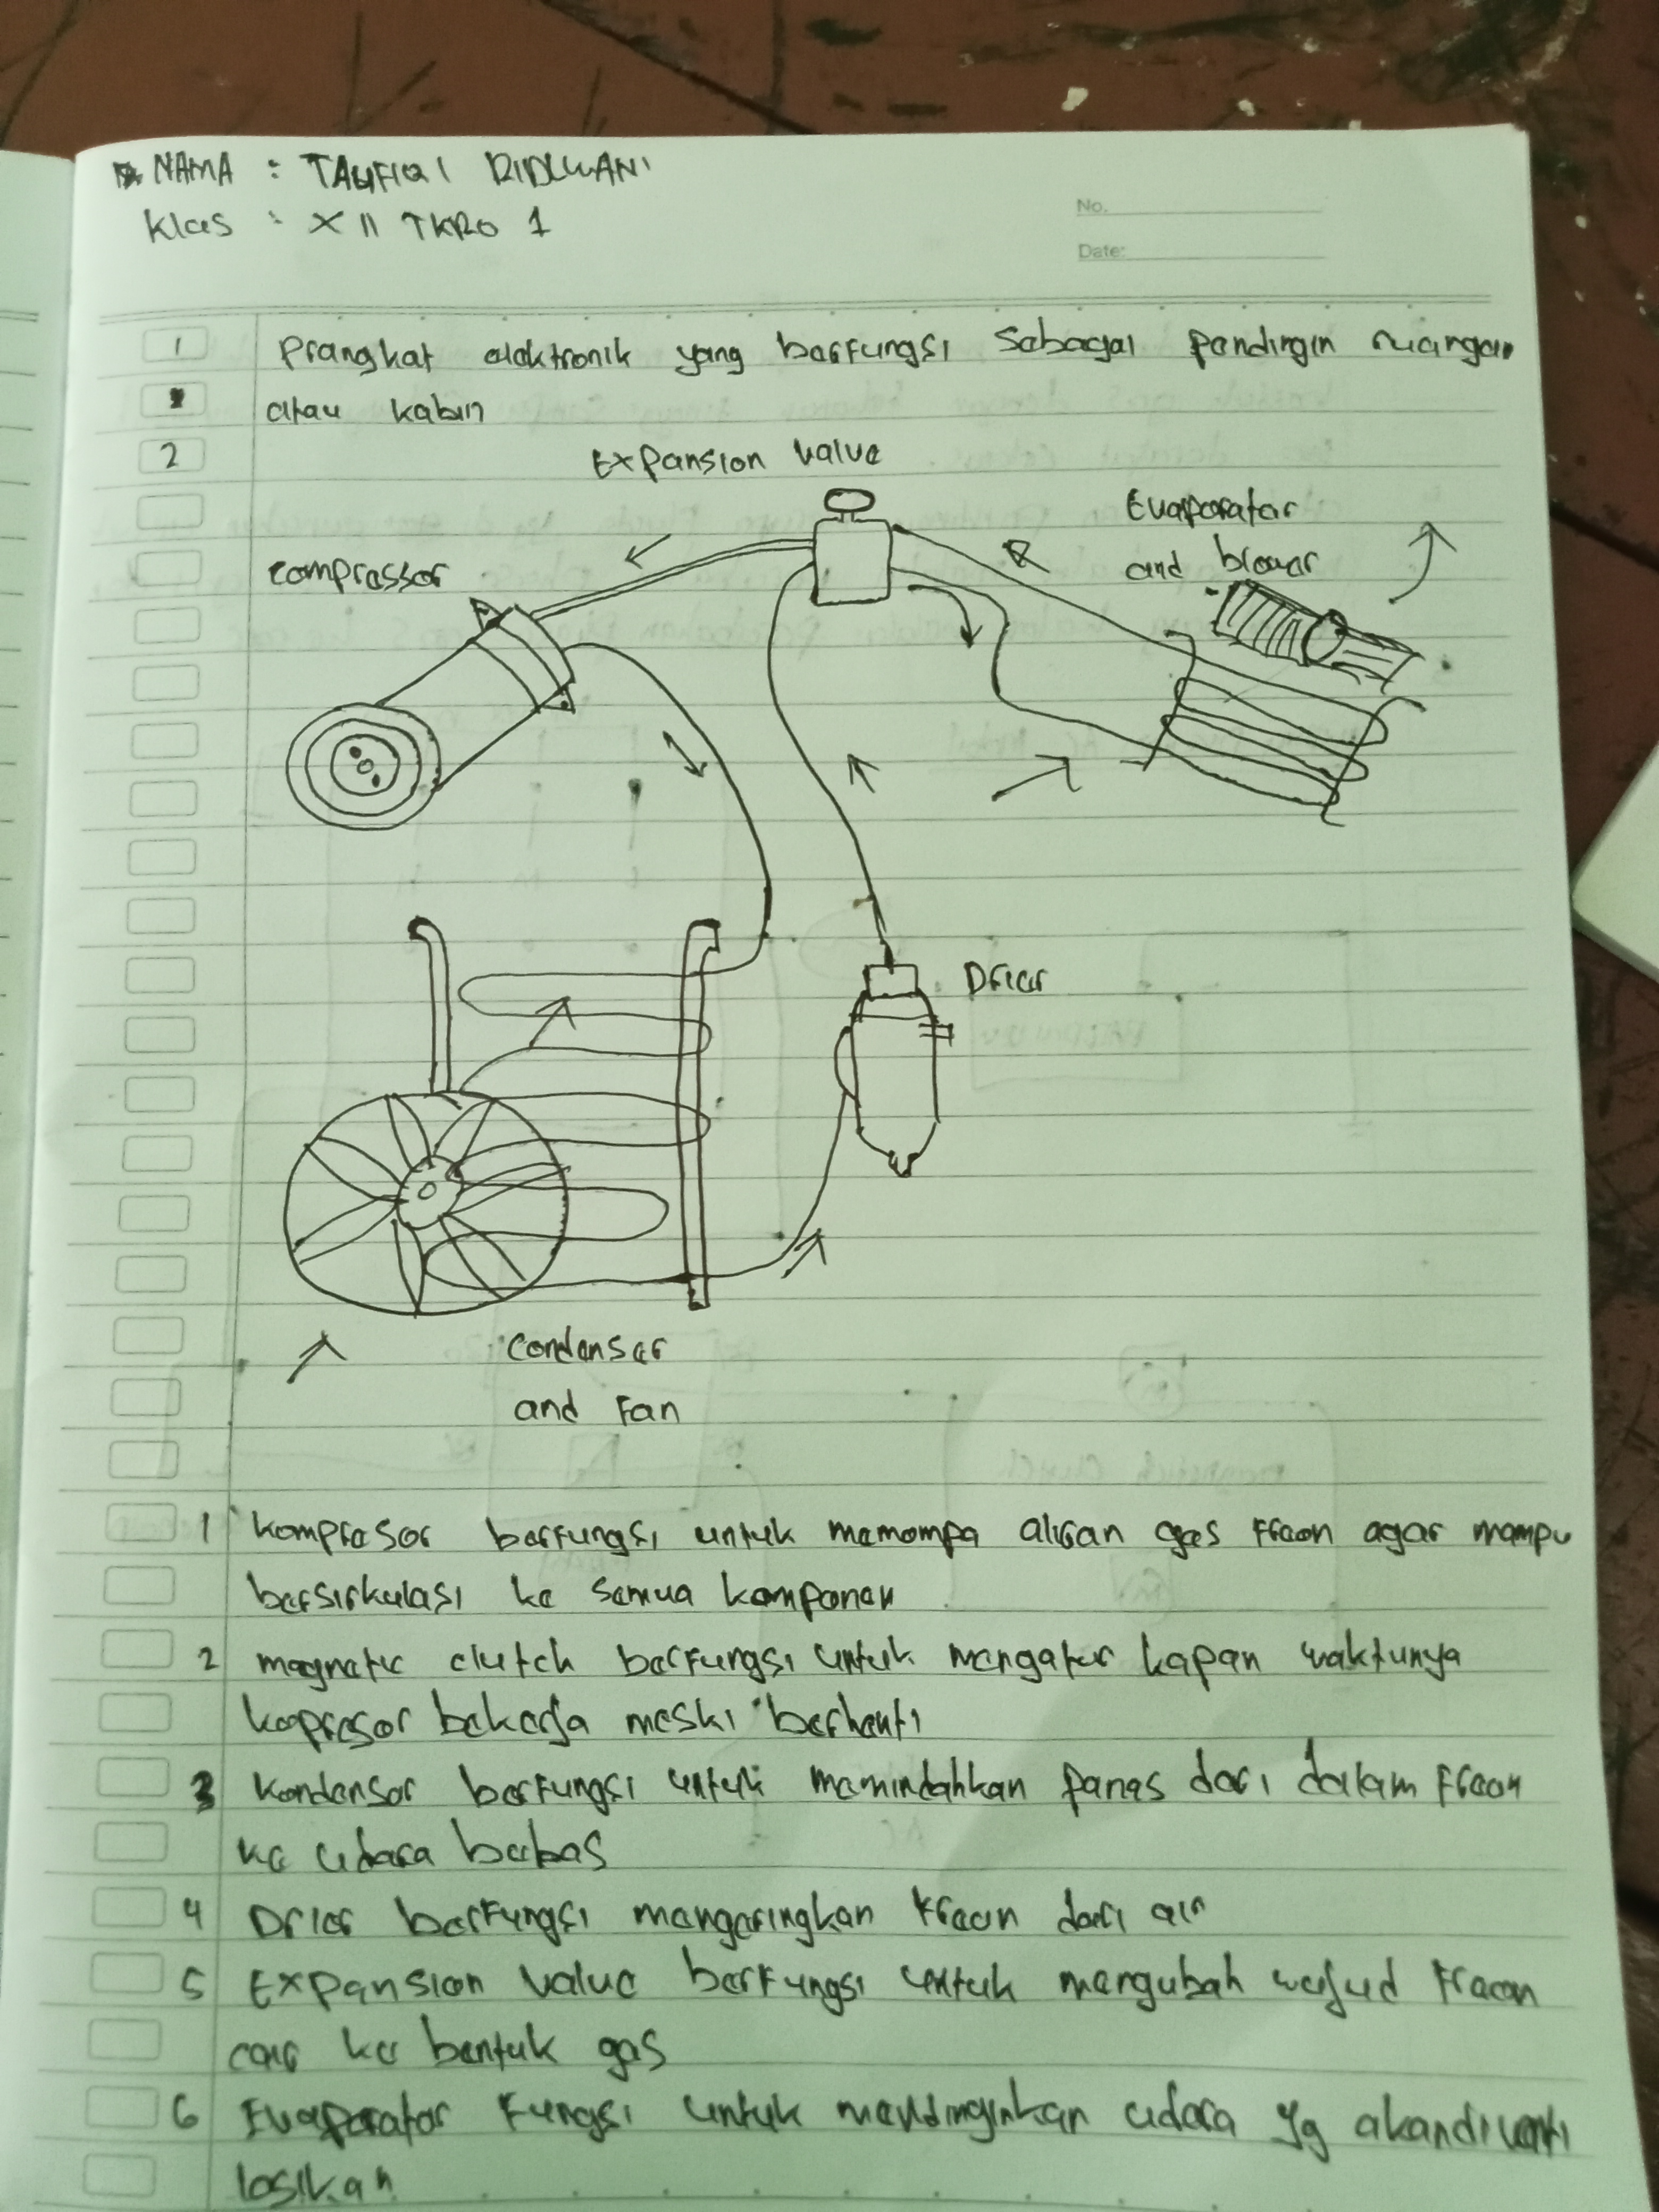 NAMA : TAUFIQI RIDLWANI
Klas : XII TKRO 1
No.
Date:
1 Prangkat elektronik yang berfungsi sebagai pendingin ruangan
atau kabin
2
Expansion value
Evaporator
and blower
compressor
Drier
Condenser
and Fan
1 Kompresor berfungsi untuk memompa aliran gas freon agar mampu
bersirkulasi ke semua komponen
2 magnetic clutch berfungsi untuk mengatur kapan waktunya
kopresor bekerja meski berhenti
3 Kondensor berfungsi untuk memindahkan panas dari dalam freon
ke udara bebas
4 Drier berfungsi mengeringkan freon dari air
5 Expansion value berfungsi untuk mengubah wujud freon
cair ke bentuk gas
6 Evaporator Fungsi untuk mendinginkan udara yg akandiventi
lasikan